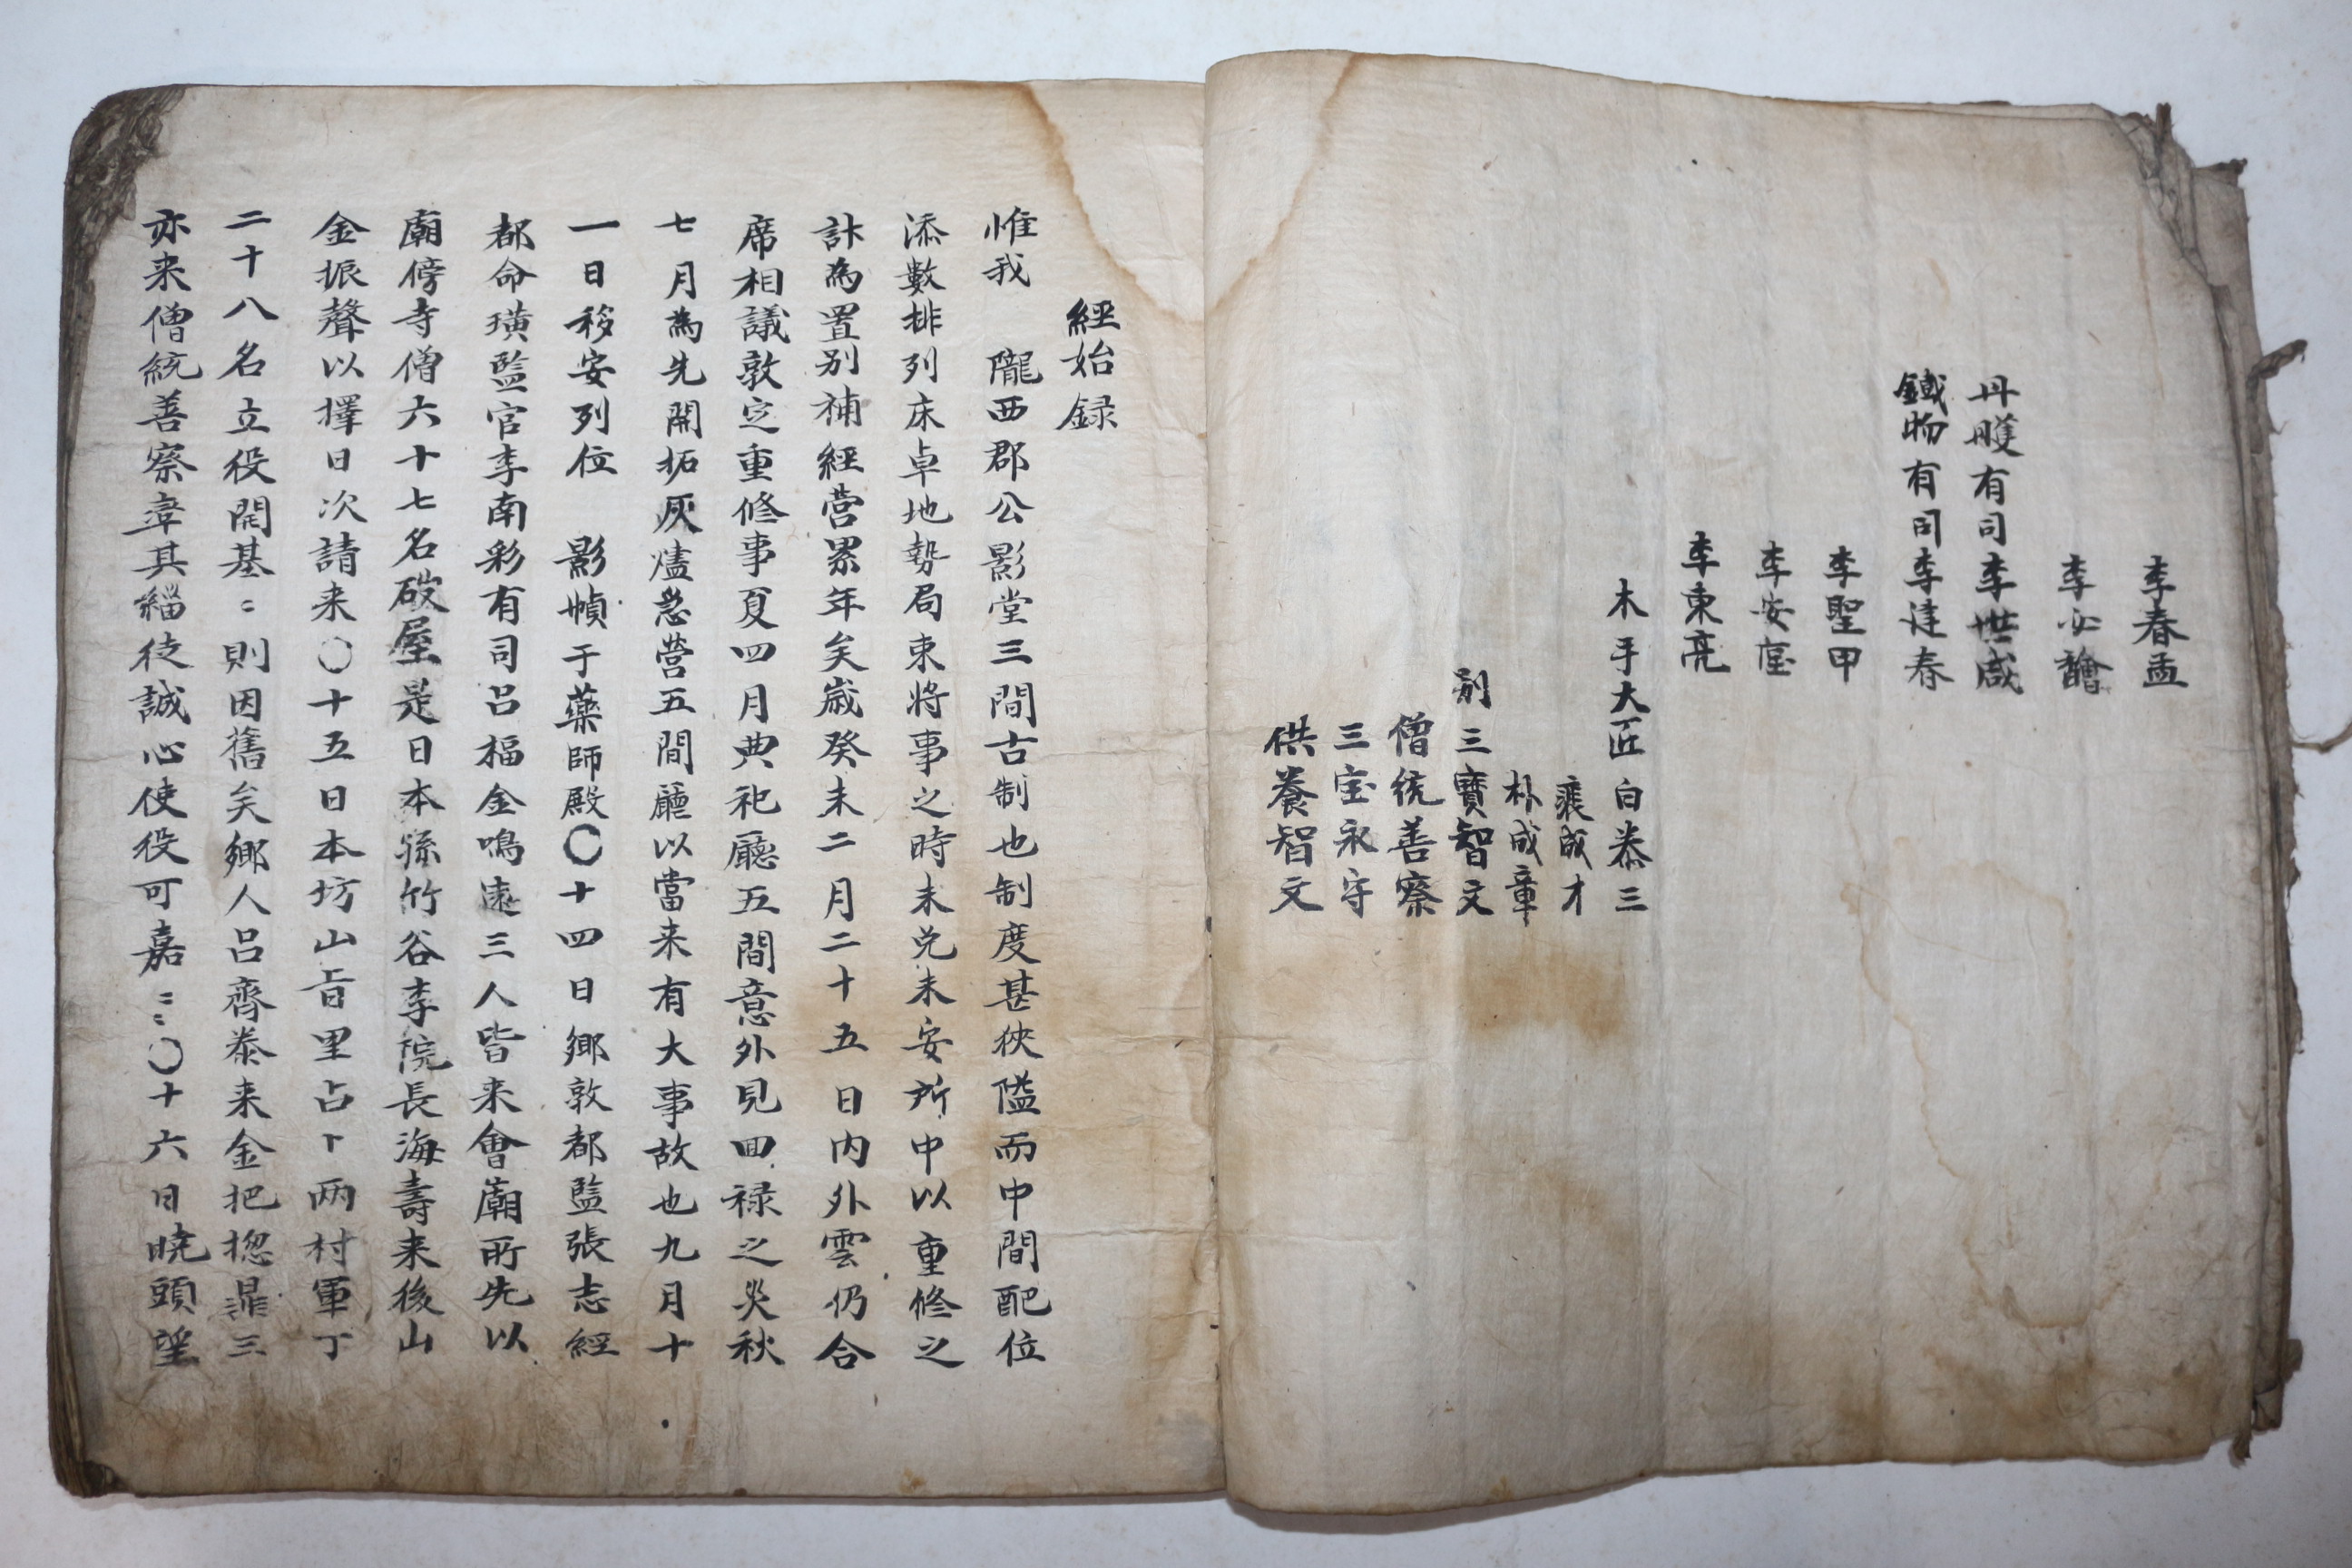 李春孟
李必馠
丹雘有司李世咸
鐵物有司李達春
李聖甲
李安
李東亮
木手大匠白泰三
裵成才
朴成章
別三寶智文
僧統善察
三宝永守
供養智文
經始録
惟我 隴西郡公影堂三間古制也制度甚狹隘而中間配位
添數排列床卓地勢局束將事之時未免未安所中以重修之
計為置別補經營累年矣歲癸未二月二十五日內外雲仍合
席相議敦定重修事夏四月典祀廳五間意外見回禄之災秋
七月為先開拓灰燼急營五間廳以當来有大事故也九月十
一日移安列位 影幀于藥師殿〇十四日鄉敦都監張志經
都命璜監官李南彩有司呂福金鳴遠三人皆来會廟所先以
廟傍寺僧六十七名破屋是日本孫竹谷李院長海壽来後山
金振聲以擇日次請来〇十五日本坊山旨里占卜两村軍丁
二十八名立役開基〻則因舊矣鄉人呂齊泰来金把揔鼎三
亦来僧統善察率其緇徒誠心使役可嘉〻〻〇十六日曉頭望